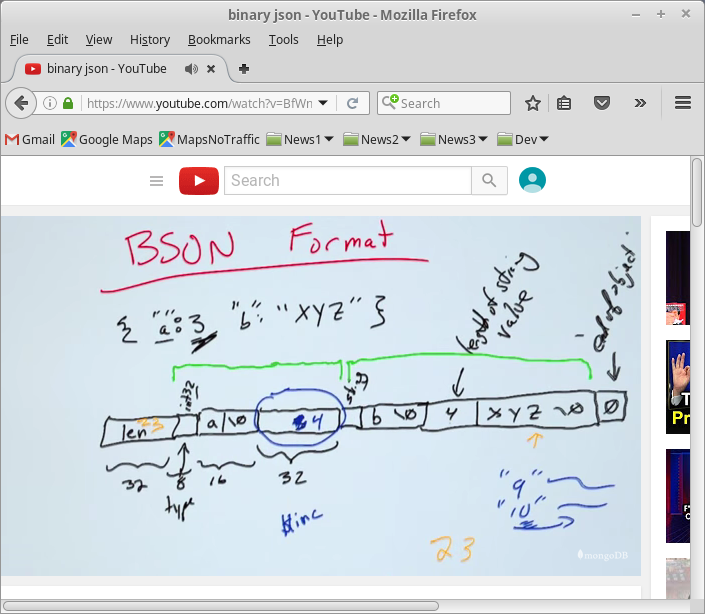 binary json - YouTube - Mozilla Firefox
File Edit View History Bookmarks Tools Help
binary json - YouTube
https://www.youtube.com/watch?v=BfWn
Search
Gmail Google Maps MapsNoTraffic News1 News2 News3 Dev
Search
BSON Format
{ "a": 3 "b": "XYZ" }
length of string
value
end of object
int32
string
len 23 a \0 4 b \0 4 X Y Z \0 0
32 8 16 32
type
$inc
"9"
"10"
23
mongoDB
T
Pr